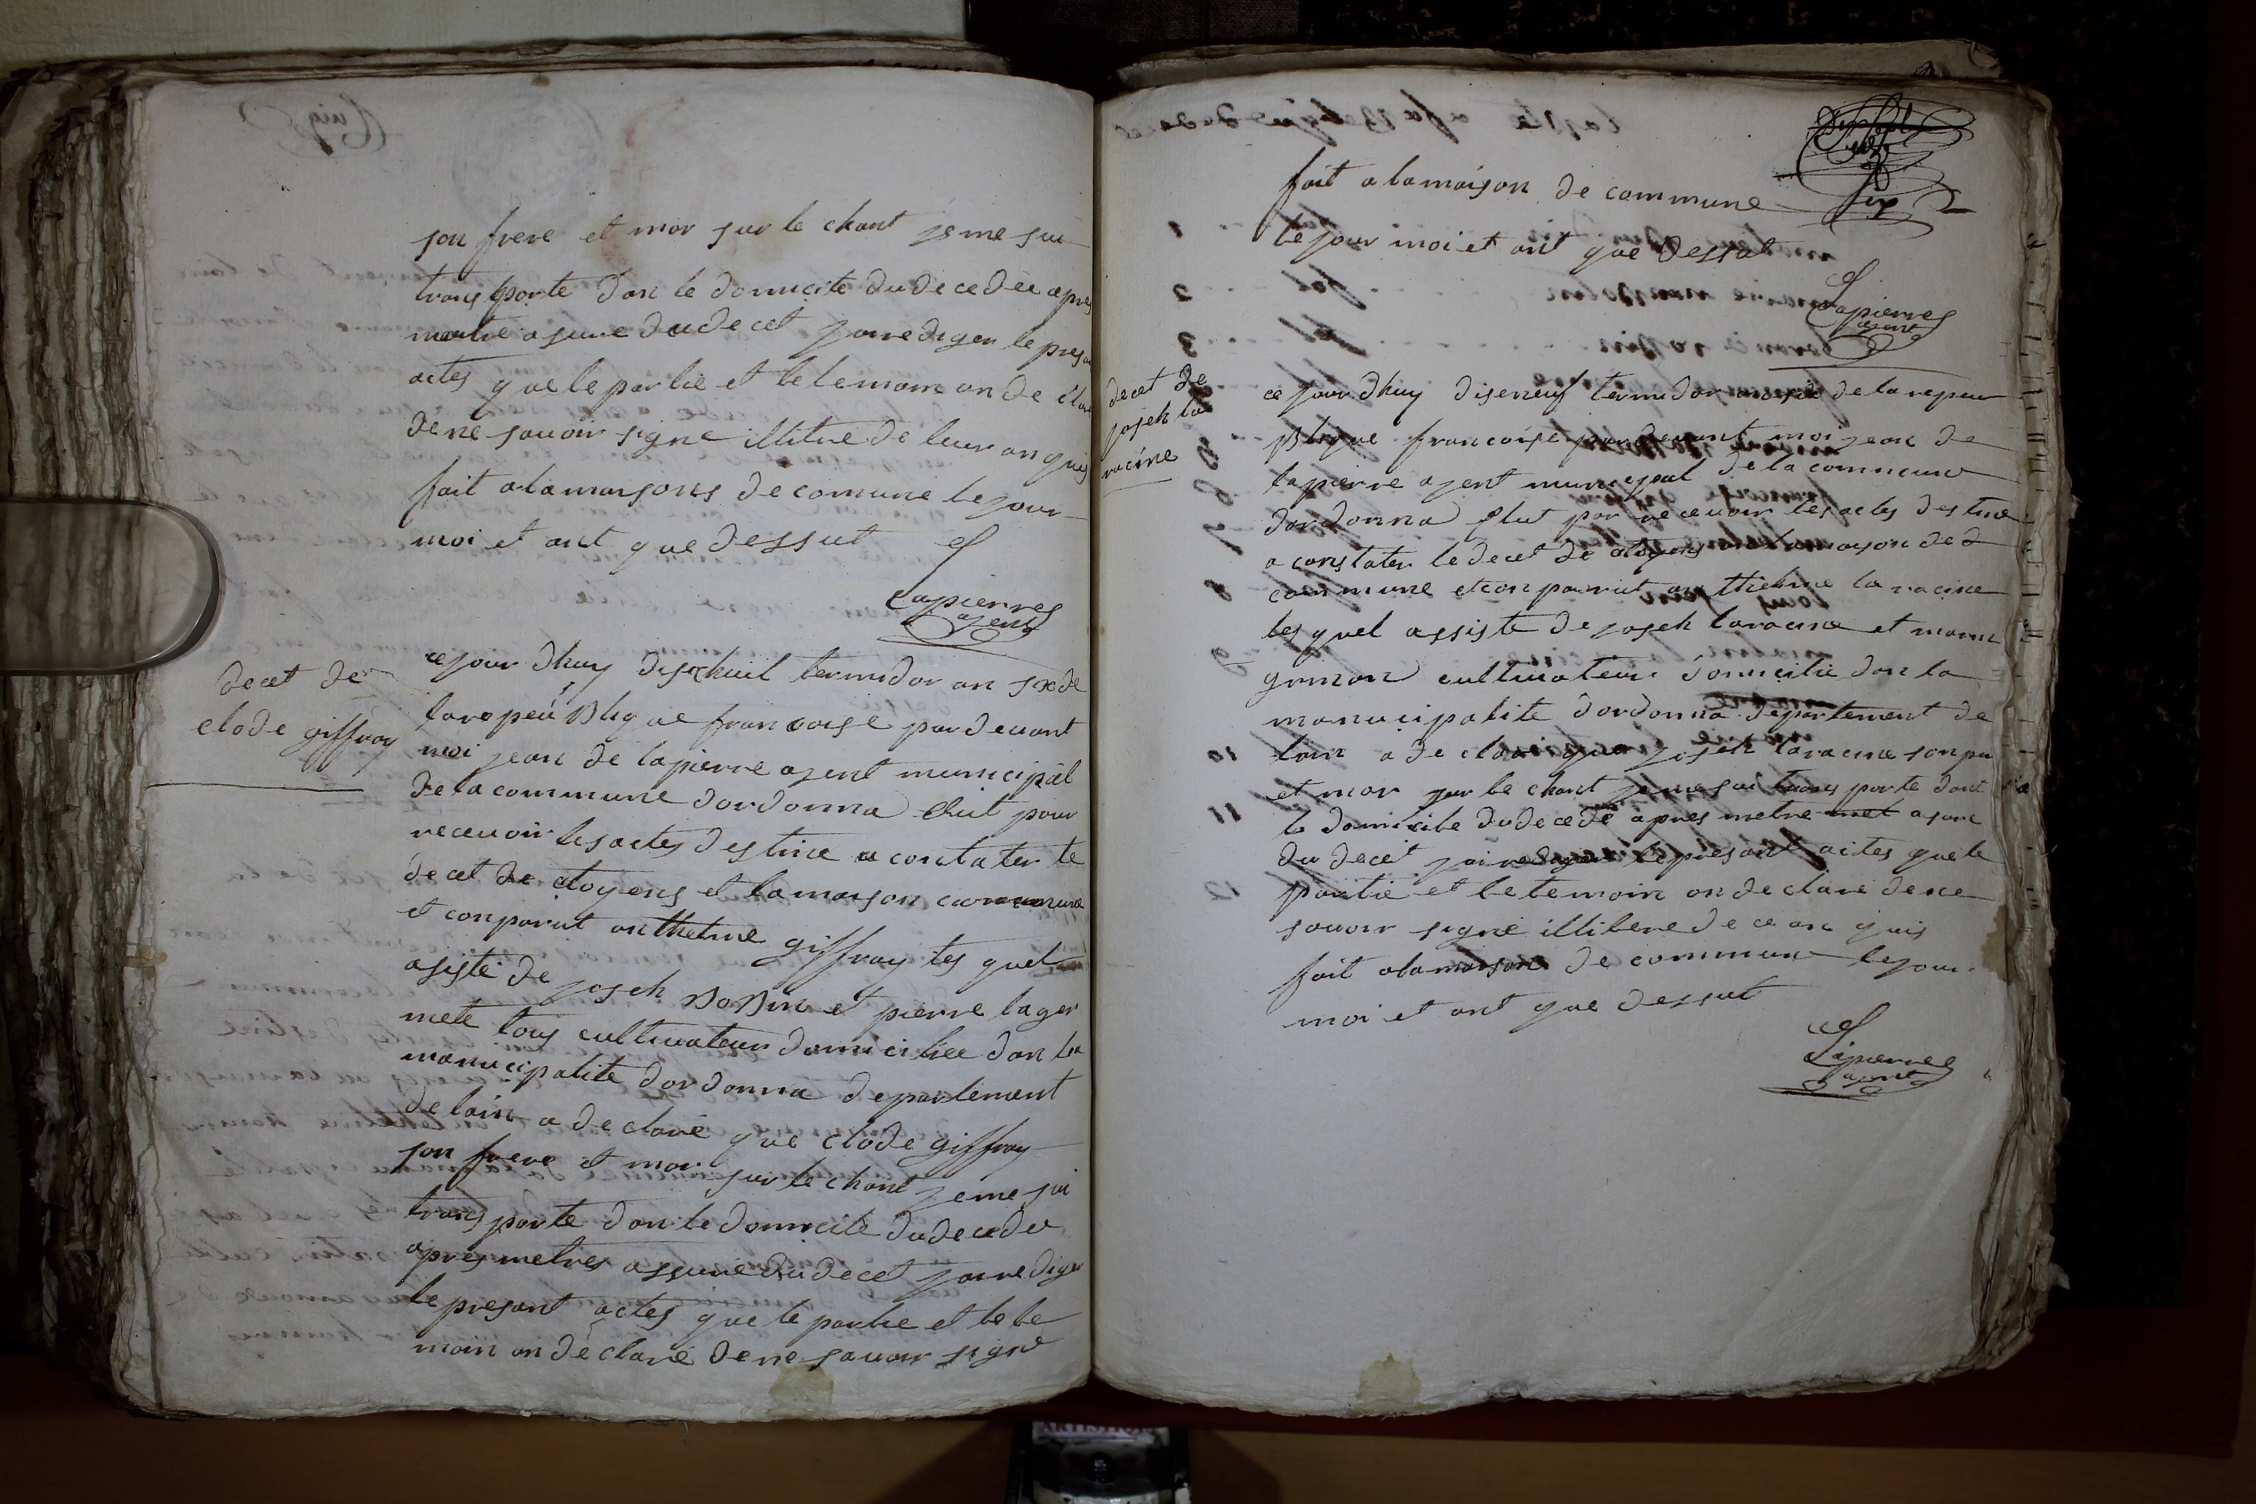 son frere et mor sur le chant je me sui
transporte dan le domicite du decedée apres
metre asure du decet jai rediger le presan
actes que le partie et le temoin on de clare
de ne savoir signe illitere de leur an quis
fait a la maisons de comune le jour
moi et ant que dessut
Lapierres
agent
decet de
clode giffray
ce jour dhuy diszhuit termidor an sixde
la repeu Blique francoise par devant
moi jean de lapierre agent municipal
de la commune dordonna eluit pour
recevoir les actes destine a contater le
decet de citoyens et la maison commune
et conparut anthelme giffray les quel
asiste de joseh BoBin et pierre lager
mete tous cultivateur domiciliee dan la
manucipalite dordonna departement
de lain a declaré que clode giffray
son frere et mor sur le chant je me sui
trans porte dan le domicile du decede
apres metres assure du decet jai redige
le presant actes que le partie et le te
moin on declaré de ne savoir signe
fait a la maison de commune
le jour moi et ant que dessut
Lapierres
agent
decet de
joseh la
racine
ce jour dhuy diseneuf termidor an sixde de la repeu
Blique francoise par devant moi jean de
lapierre agent municipal de la commune
dordonna elut par recevoir les actes destine
a constater le decet de citoyens a la maison de
commune et conparut anthielme laracine
les quel assiste de joseh laracine et
cultivateur domicilie dan la
manucipalite dordonna departement de
lain a declaré que joseh laracine son
et mor sur le chant je me sui trans porte dant
le domicile du decedé apres metre met asure
du decet jai redigere le presant actes que le
partie et le temoin on declaré de ne
savoir signe illitere de ce an quis
fait a la maison de commune le jour
moi et ant que dessut
Lapierres
agent